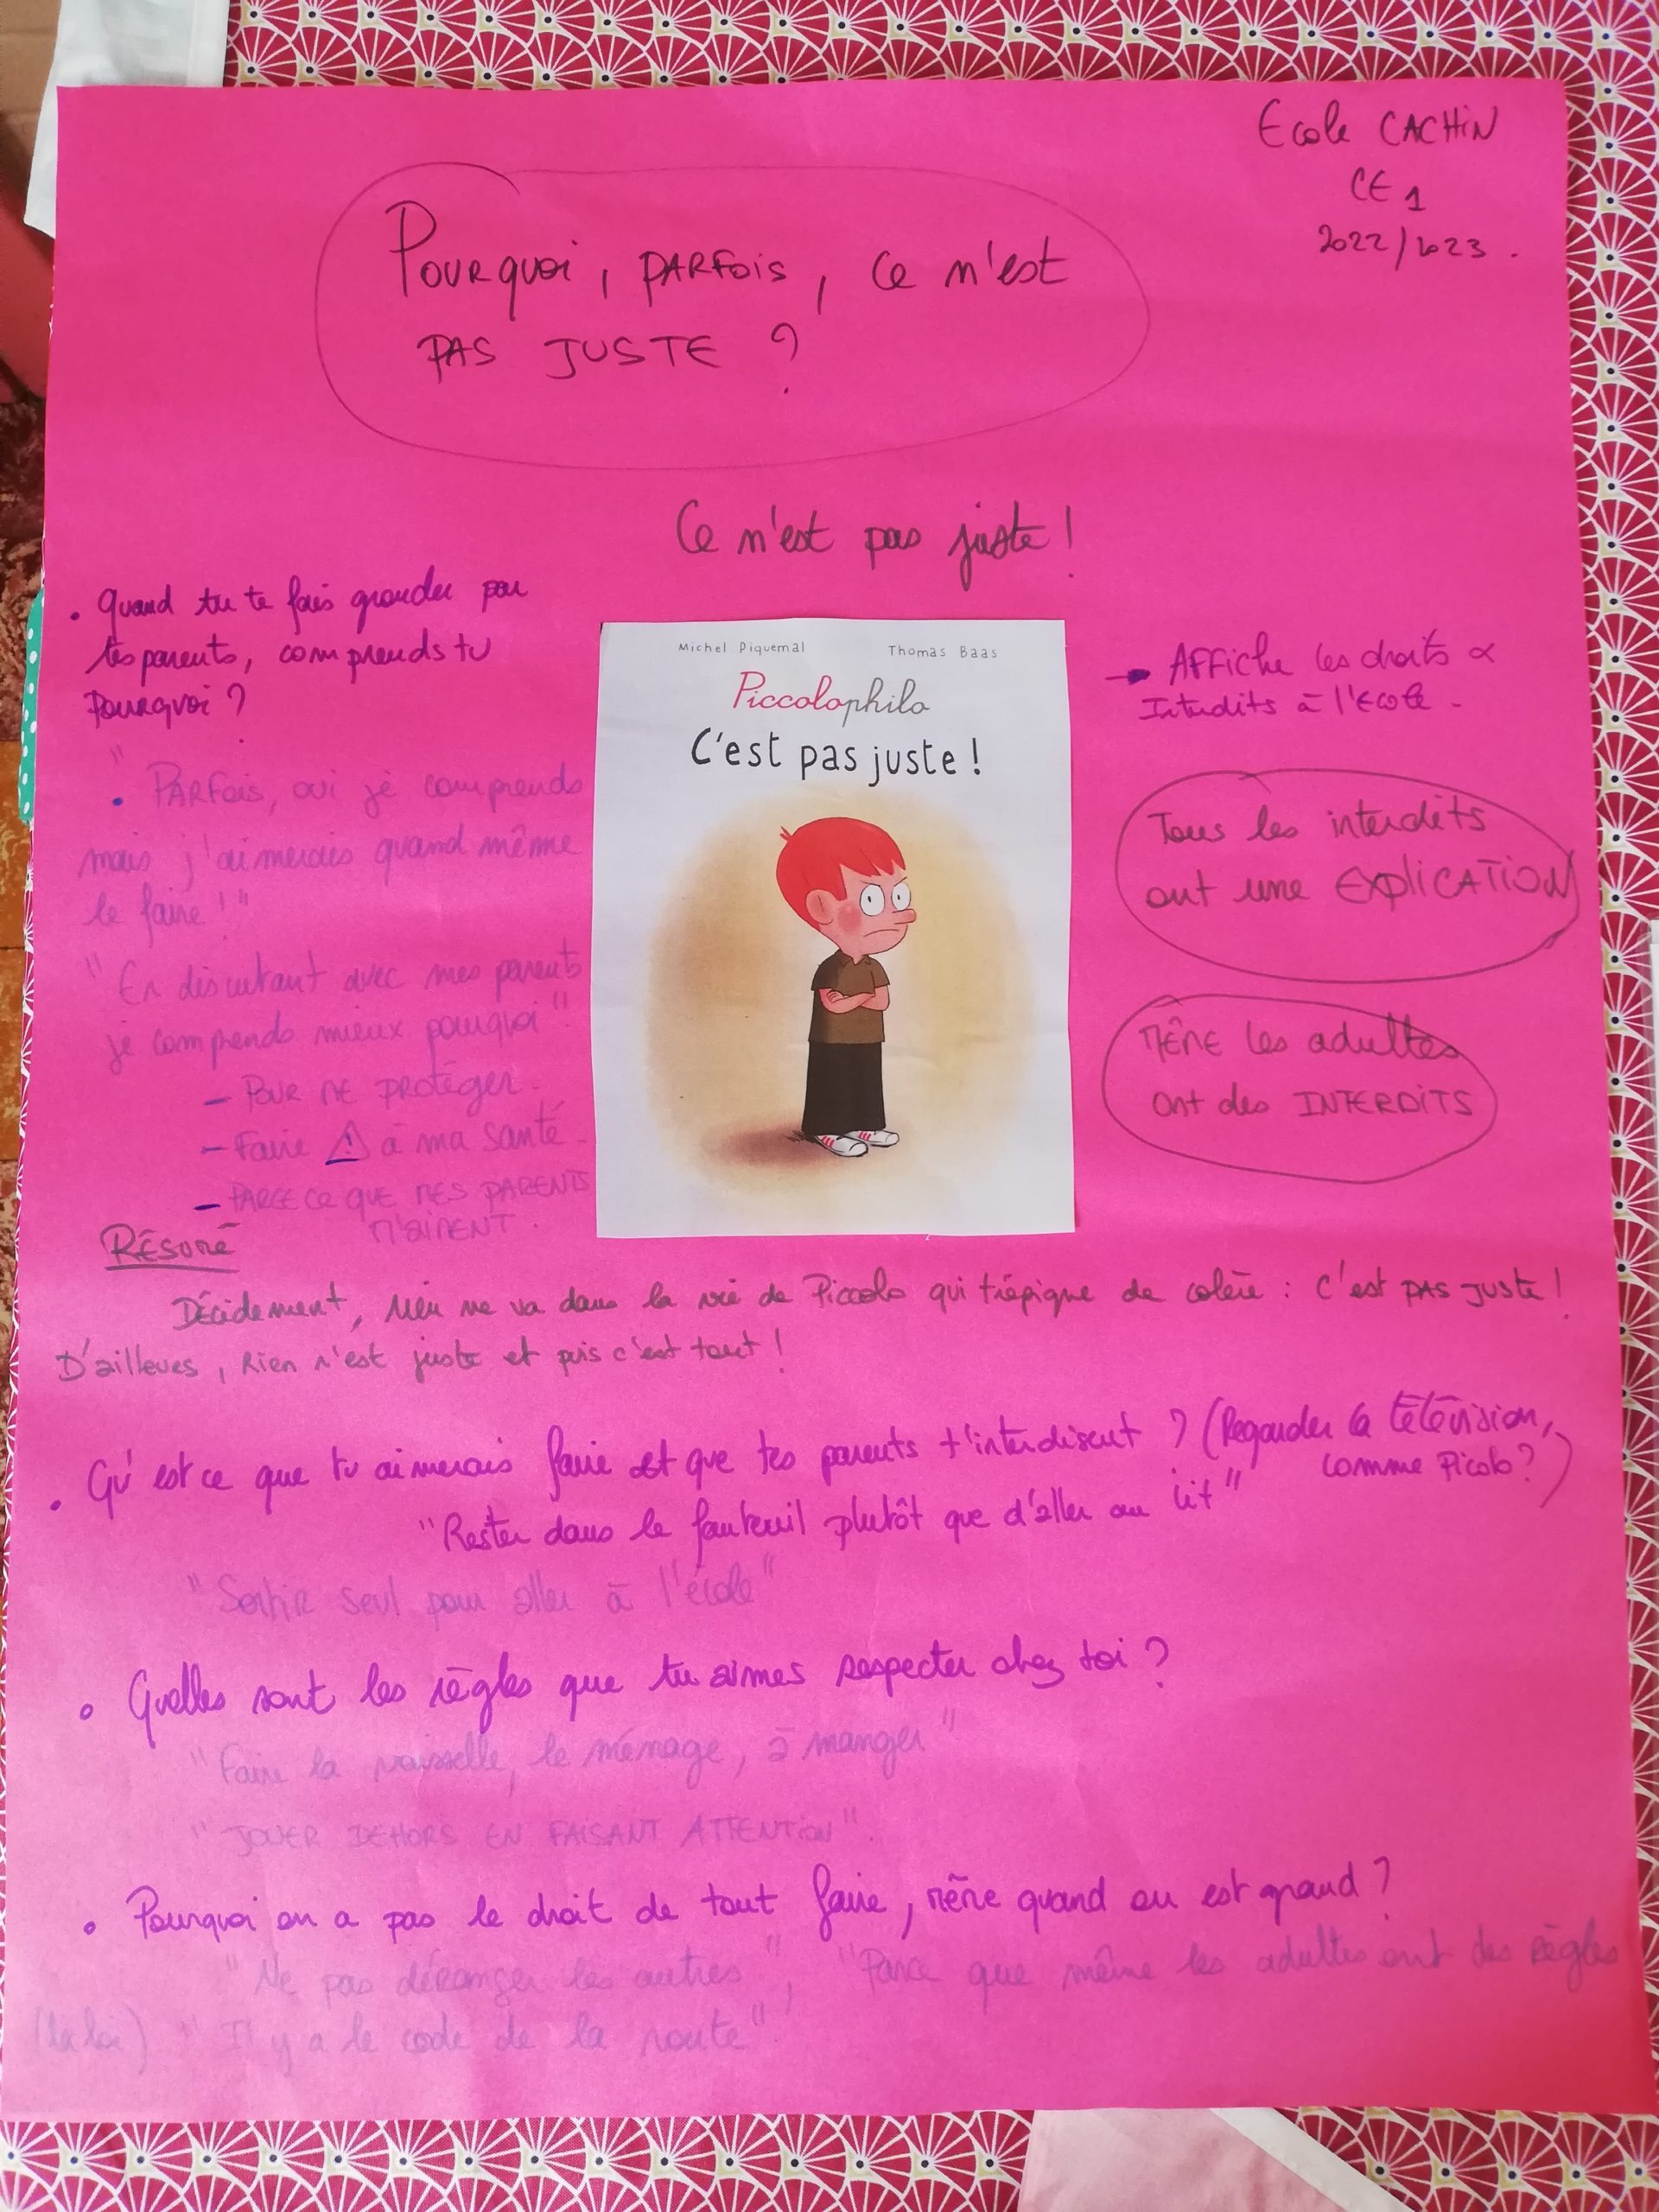 Ecole CACHIN
CE1
2022/2023.
Pourquoi, PARFOIS, ce n'est
PAS JUSTE ?
Ce n'est pas juste !
• Quand tu te fais gronder par
tes parents, comprends tu
Pourquoi ?
" • PARFois, oui je comprends
mais j'aimerais quand même
le faire !"
"En discutant avec mes parents
je comprends mieux pourquoi"
- POUR ME PROTéger.
- Faire ⚠ à ma santé.
- PARCE ce QUE MES PARENTS
M'AIMENT.
Michel Piquemal Thomas Baas
Piccolophilo
C'est pas juste !
→ AFFiche les droits &
Interdits à l'Ecole.
Tous les interdits
ont une EXPLICATION
MÊME les adultes
ont des INTERDITS
RÉSUMÉ
Décidement, rien ne va dans la vie de Piccolo qui trépigne de colère : c'est PAS JUSTE !
D'ailleurs, Rien n'est juste et puis c'est tout !
• Qu'est ce que tu aimerais faire et que tes parents t'interdisent ? (Regarder la télévision,
comme Picolo ?)
"Rester dans le fauteuil plutôt que d'aller au lit"
"Sortir seul pour aller à l'école"
• Quelles sont les règles que tu aimes respecter chez toi ?
"Faire la vaisselle, le ménage, à manger"
"JOUER DEHORS EN FAISANT ATTENTION".
• Pourquoi on a pas le droit de tout faire, même quand on est grand ?
"Ne pas déranger les autres", "Parce que même les adultes ont des règles
(la loi). "Il y a le code de la route".